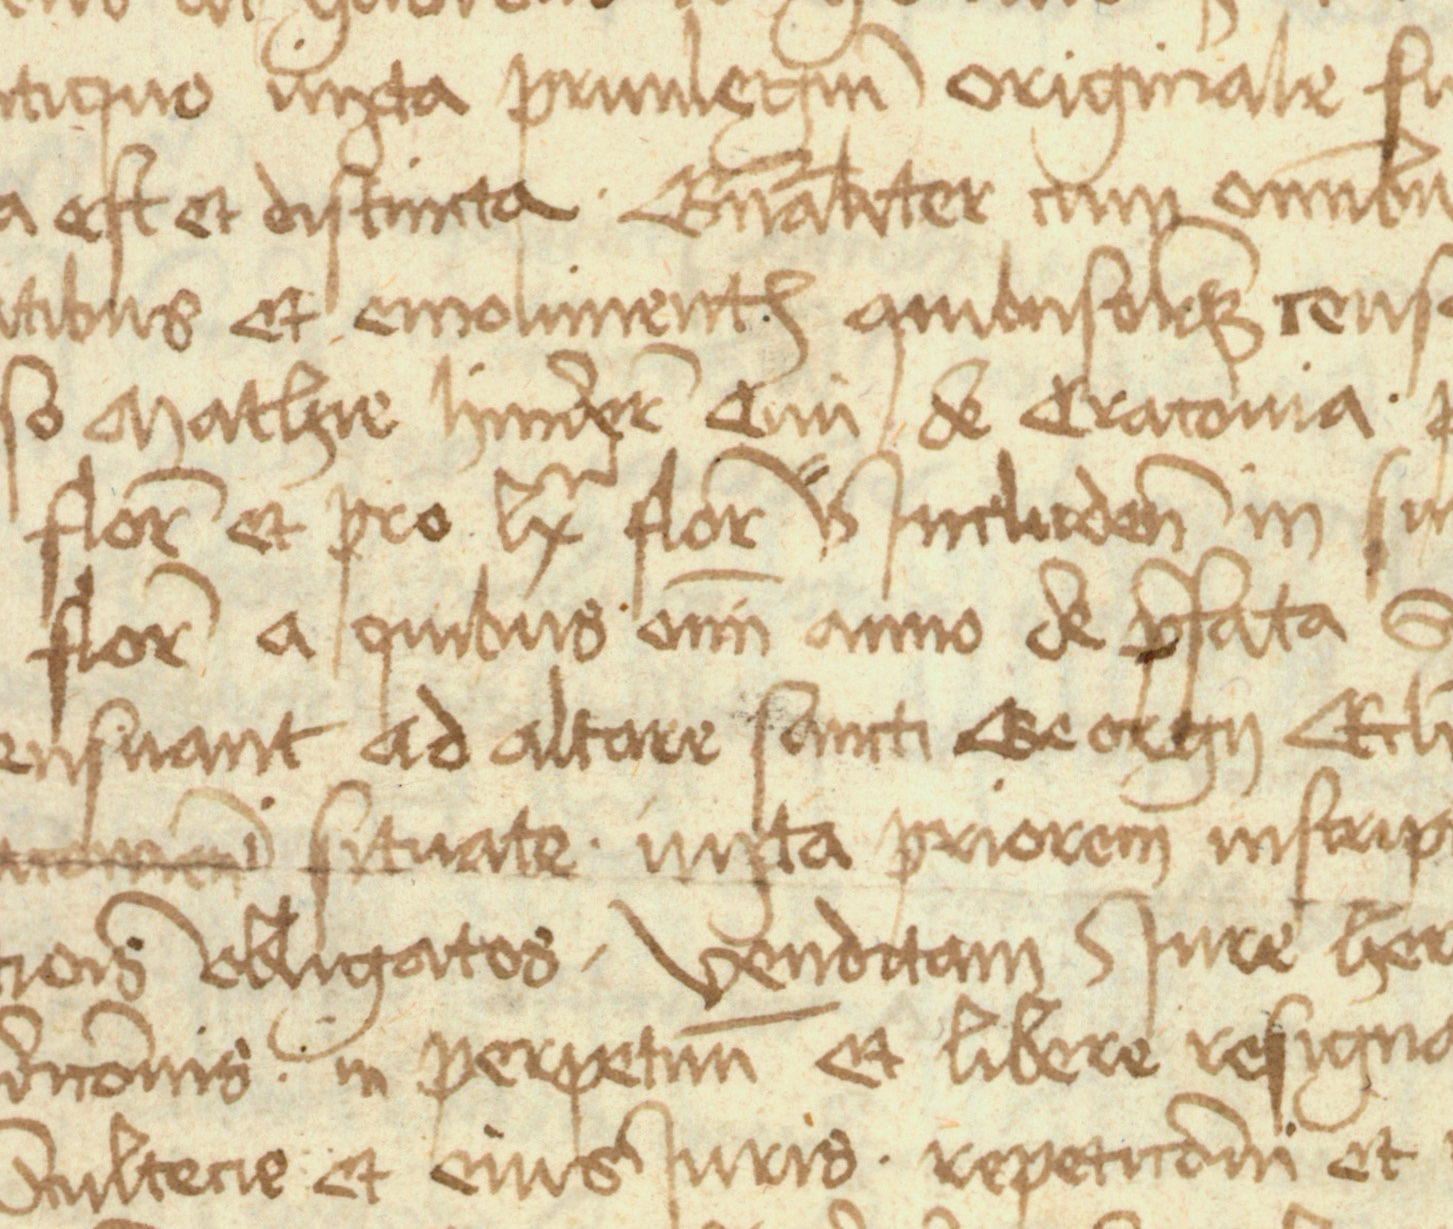 ntiquo iuxta priuilegium originale
a est et distincta. Gnaliter cum omnibus
tibus et emolimentis quibuscunque cens
so Mathie Ciui de Cracouia.
flor et pro lx flor includen in
flor a quibus omni anno de prefata
ensuant ad altare sancti Georgii
situate. iuxta priorem inscrip
cionis obligatos. Vendidam Jure her
in perpetuum et libere resigna
Scultecie et eius Juris. repeticioni et